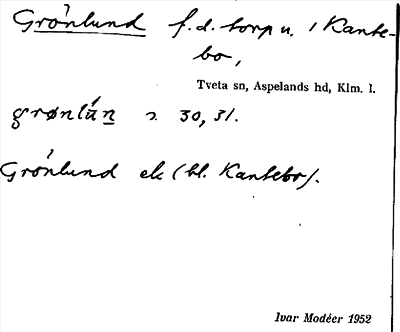 Grönlund f.d. torp u. / Kante-
bo,
Tveta sn, Aspelands hd, Klm. l.
grønlún 30, 31.
Grönlund ek (bl. Kantebo).
Ivar Modéer 1952